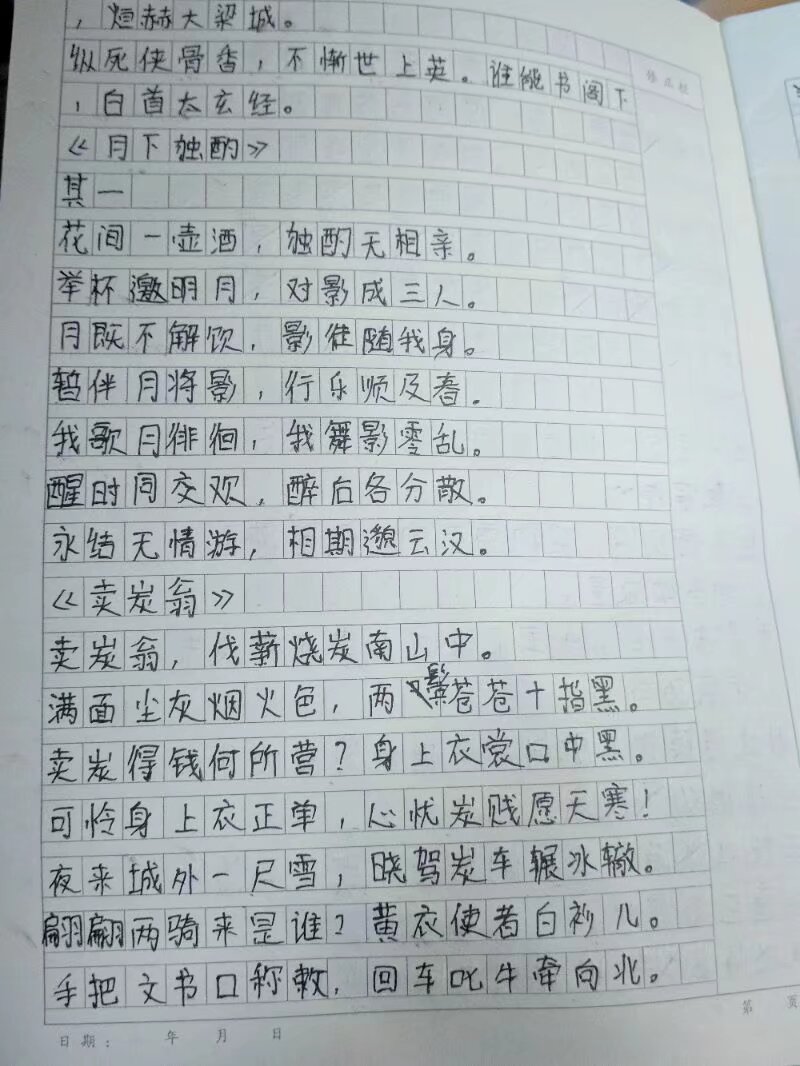 ，烜赫大梁城。
纵死侠骨香，不惭世上英。谁能书阁下
，白首太玄经。
《月下独酌》
其一
花间一壶酒，独酌无相亲。
举杯邀明月，对影成三人。
月既不解饮，影徒随我身。
暂伴月将影，行乐顺及春。
我歌月徘徊，我舞影零乱。
醒时同交欢，醉后各分散。
永结无情游，相期邈云汉。
《卖炭翁》
卖炭翁，伐薪烧炭南山中。
满面尘灰烟火色，两鬓苍苍十指黑。
卖炭得钱何所营？身上衣裳口中黑。
可怜身上衣正单，心忧炭贱愿天寒！
夜来城外一尺雪，晓驾炭车辗冰辙。
翩翩两骑来是谁？黄衣使者白衫儿。
手把文书口称敕，回车叱牛牵向北。
日期： 年 月 日
第 页